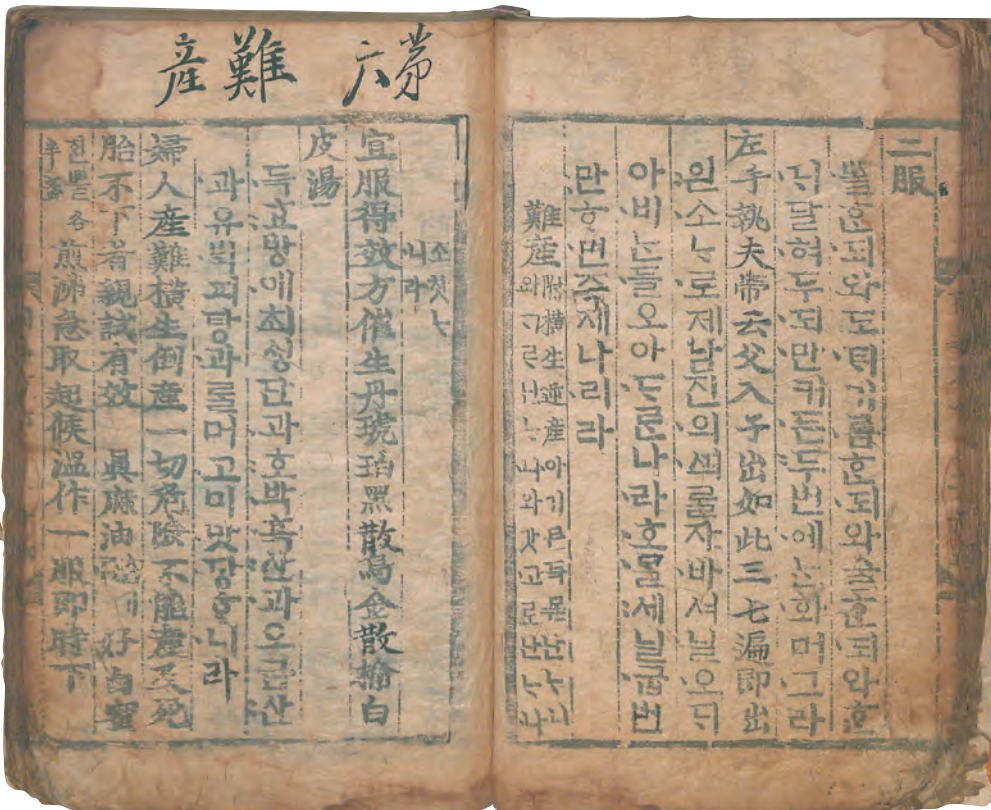 第六 難産
二服
ᄒᆞᆫ되와도ᄐᆡ기름ᄒᆞᆫ되와술ᄒᆞᆫ되와ᄒᆞᆫ
ᄃᆡ달혀두되만커든두번에ᄂᆞ화머그라
左手執夫帶云父入子出如此三七遍即出
왼소ᄂᆞ로제남진의ᄯᅴᄅᆞᆯ자바셔닐오ᄃᆡ
아비ᄂᆞᆫ들오아ᄃᆞᄅᆞᆫ나라호ᄆᆞᆯ세닐굽번
만ᄒᆞ면즉재나리라
難産 附橫生逆産아기 몯난ᄂᆞ니
와ᄀᆞᄅᆞ난ᄂᆞ니와갓고로난ᄂᆞ니
소칫ᄂᆞ
니라
宜服得效方催生丹琥珀黑散烏金散楡白
皮湯
득효방애최ᄉᆡᆼ단과호박흑산과오금산
과유ᄇᆡᆨ피탕과ᄅᆞᆯ머고미맛당ᄒᆞ니라
婦人産難橫生倒産一切危險不能産及死
胎不下者親試有效 眞麻油 好白蜜
ᄒᆡᆫᄢᅮᆯ各半盞 煎沸急取起候溫作一服即時下